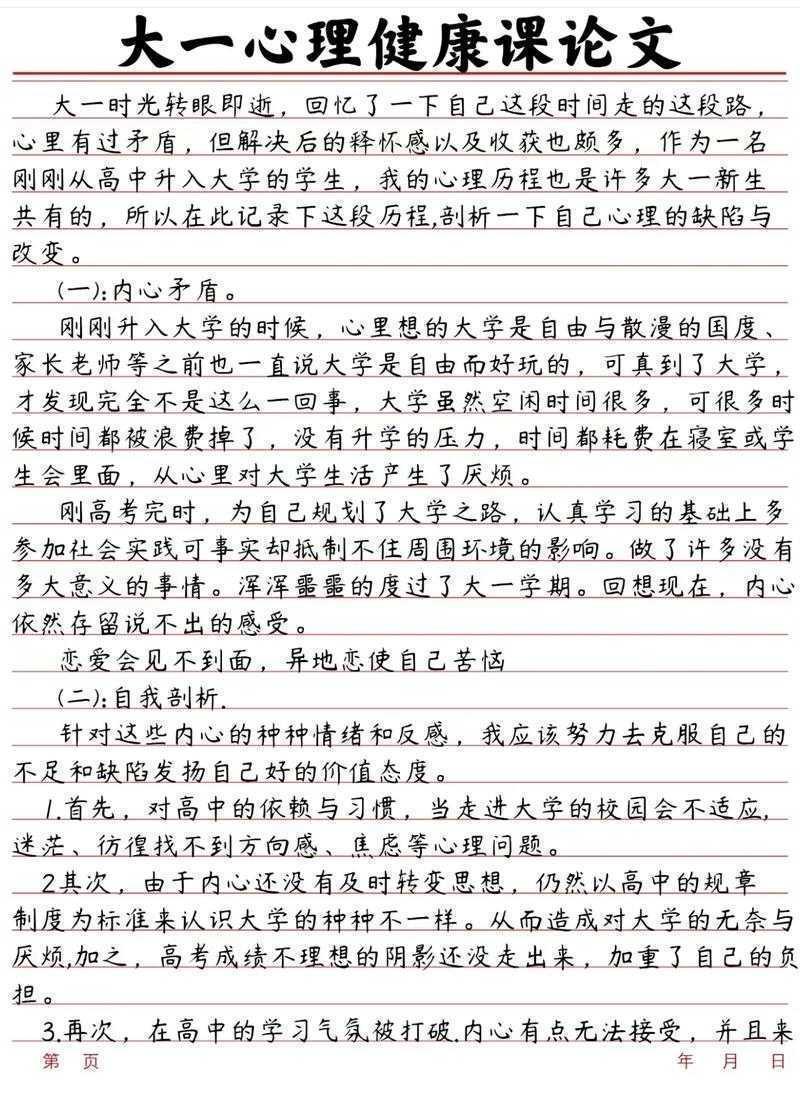 大一心理健康课论文
大一时光转眼即逝，回忆了一下自己这段时间走的这段路，
心里有过矛盾，但解决后的释怀感以及收获也颇多，作为一名
刚刚从高中升入大学的学生，我的心理历程也是许多大一新生
共有的，所以在此记录下这段历程,剖析一下自己心理的缺陷与
改变。
(一):内心矛盾。
刚刚升入大学的时候，心里想的大学是自由与散漫的国度、
家长老师等之前也一直说大学是自由而好玩的，可真到了大学，
才发现完全不是这么一回事，大学虽然空闲时间很多，可很多时
候时间都被浪费掉了，没有升学的压力，时间都耗费在寝室或学
生会里面，从心里对大学生活产生了厌烦。
刚高考完时，为自己规划了大学之路，认真学习的基础上多
参加社会实践可事实却抵制不住周围环境的影响。做了许多没有
多大意义的事情。浑浑噩噩的度过了大一学期。回想现在，内心
依然存留说不出的感受。
恋爱会见不到面，异地恋使自己苦恼
(二):自我剖析.
针对这些内心的种种情绪和反感，我应该努力去克服自己的
不足和缺陷发扬自己好的价值态度。
1.首先，对高中的依赖与习惯，当走进大学的校园会不适应,
迷茫、彷徨找不到方向感、焦虑等心理问题。
2其次，由于内心还没有及时转变思想，仍然以高中的规章
制度为标准来认识大学的种种不一样。从而造成对大学的无奈与
厌烦,加之，高考成绩不理想的阴影还没走出来，加重了自己的负
担。
3.再次，在高中的学习气氛被打破.内心有点无法接受，并且来
第 页 年 月 日